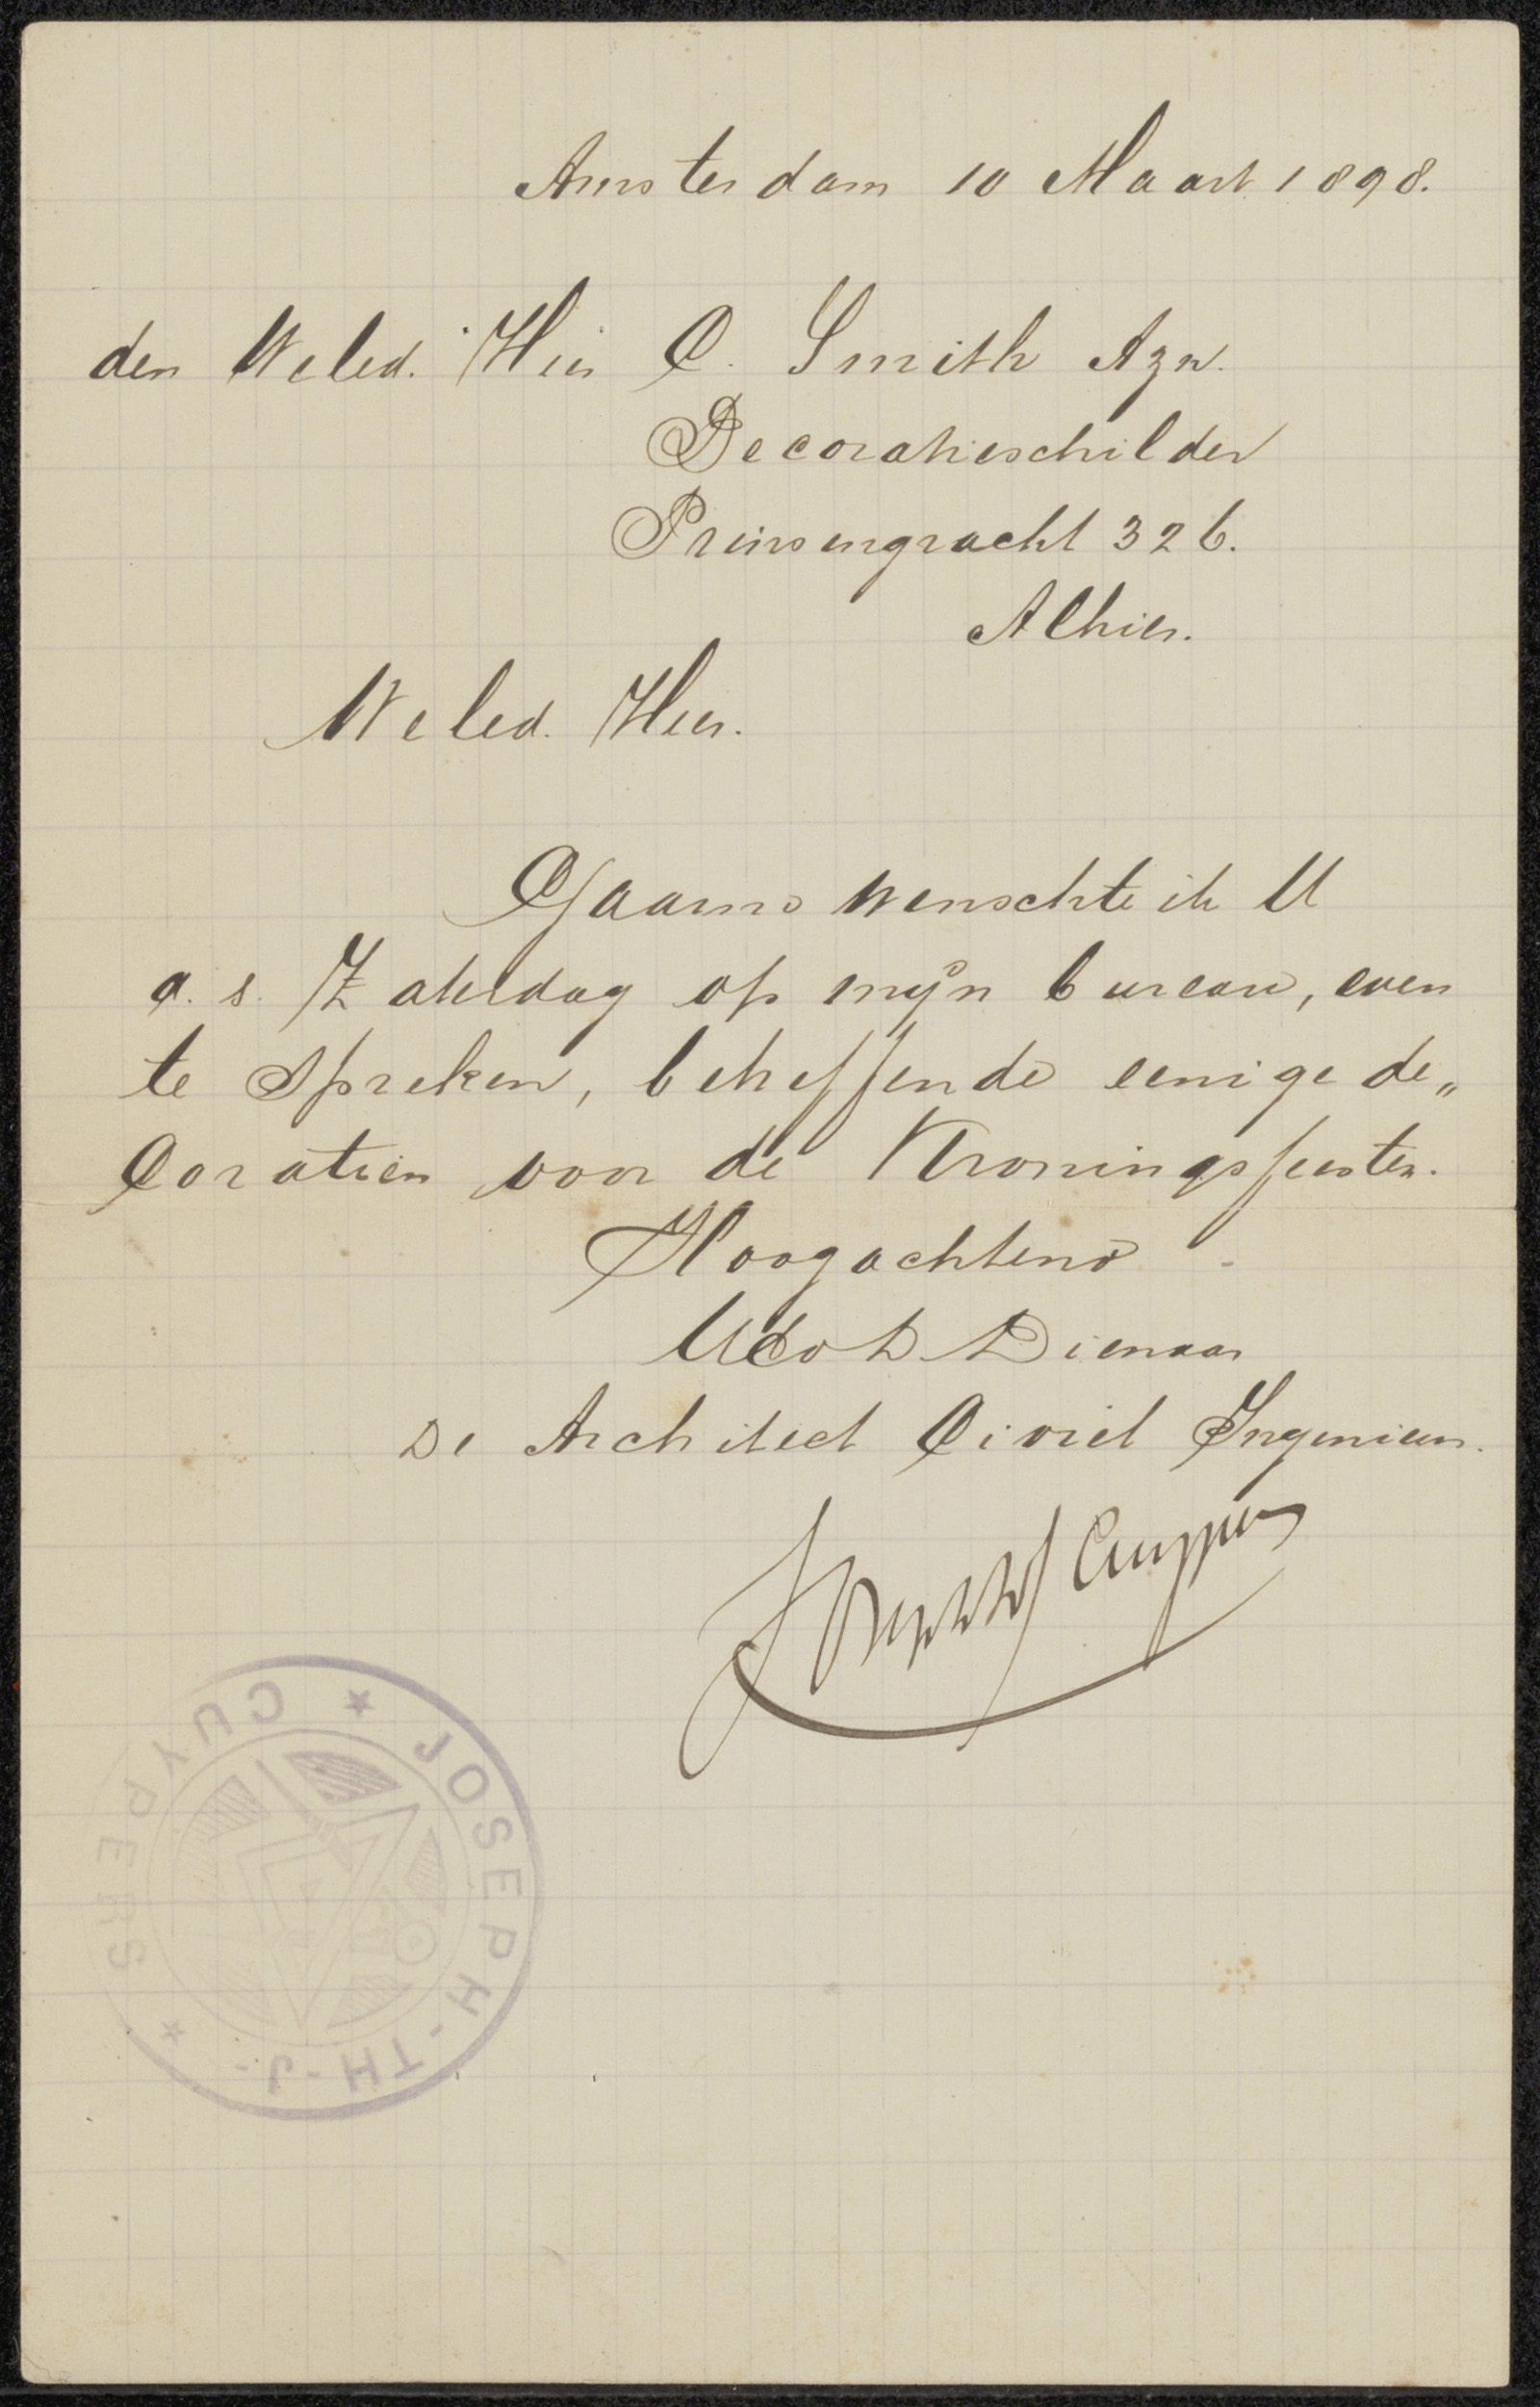 Amsterdam 10 Maart 1898.
den Weled. Heer C. Smith Azn.
Decoratieschilder
Prinsengracht 326.
Alhier.
Weled. Heer.
Gaarne wenschte ik U
a. s. Zaterdag op mijn bureau, even
te spreken, betreffende eenige de„
coratien voor de Kroningsfeesten.
Hoogachtend
UEd D Dienaar
De Architect Civiel Ingenieur.
Joseph Th J Cuypers
★ JOSEPH-TH-J- ★ CUYPERS